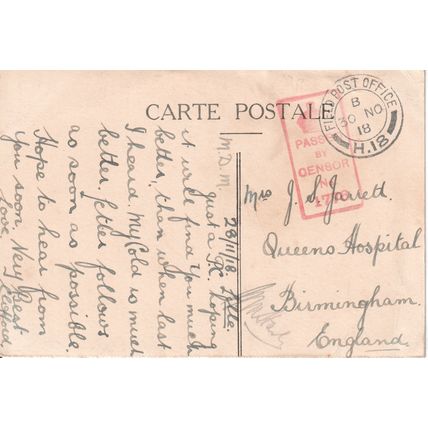 CARTE POSTALE
M.D.M.
23/11/18. Lille.
Just a P.C. hoping
it will find you much
better, than when last
I heard. My Cold is much
better, letter follows
as soon as possible.
Hope to hear from
you soon, Very Best
Love,
FIELD POST OFFICE
B
30 NO
18
H.18
PASSED
BY
CENSOR
No
Mrs J. S. Jarrett.
Queens Hospital
Birmingham.
England.